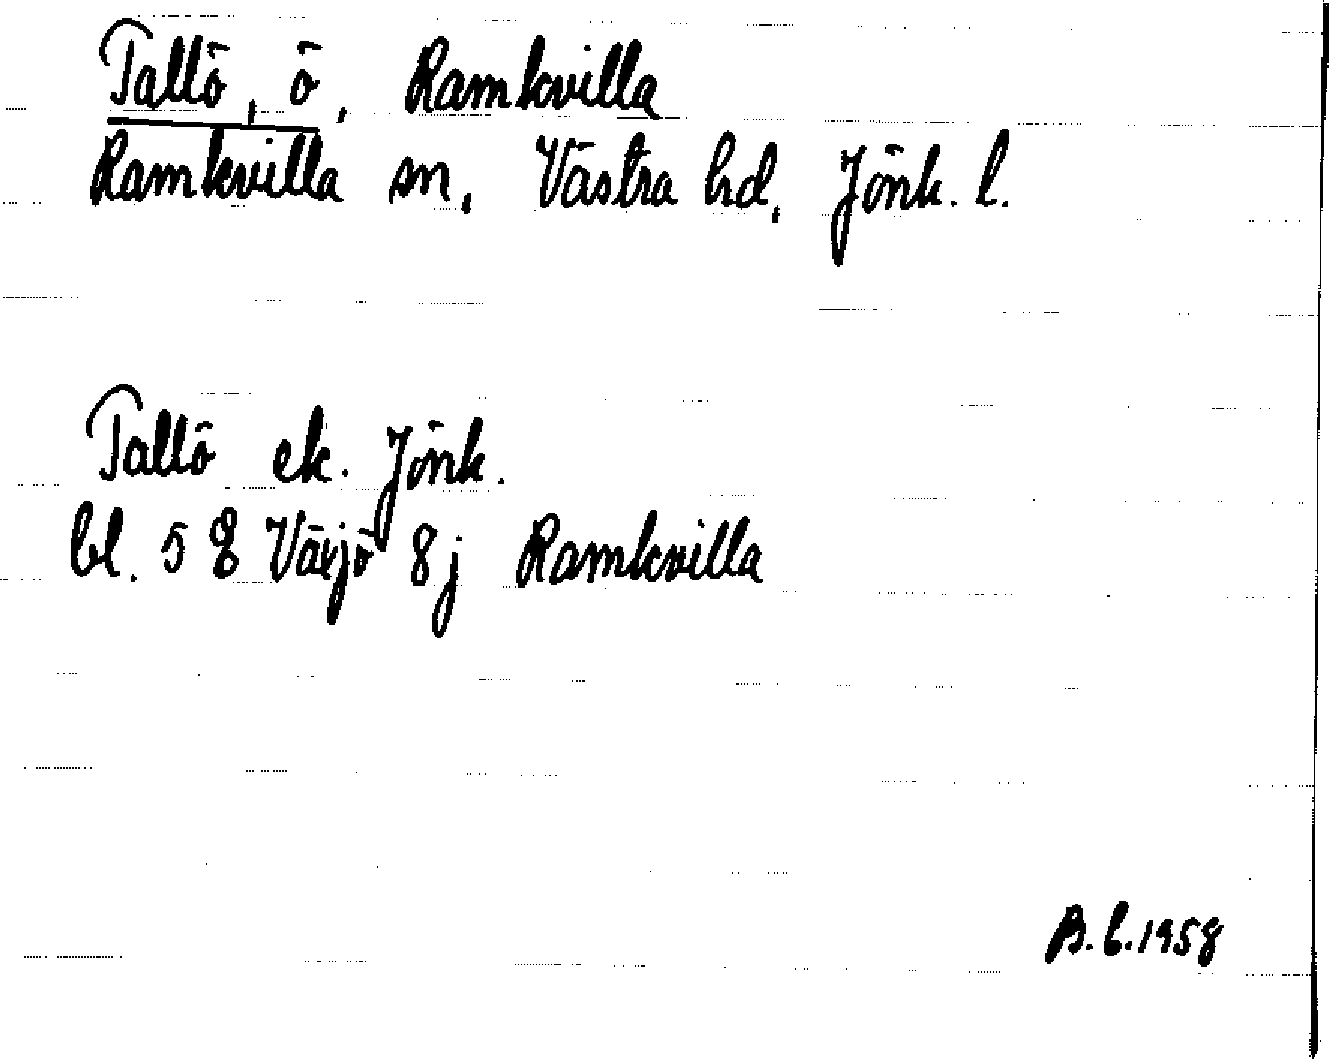 Tallö, ö, Ramkvilla
Ramkvilla sn, Västra hd, Jönk. l.
Tallö ek. Jönk.
bl. 5 E Växjö 8j Ramkvilla
B.L.1958